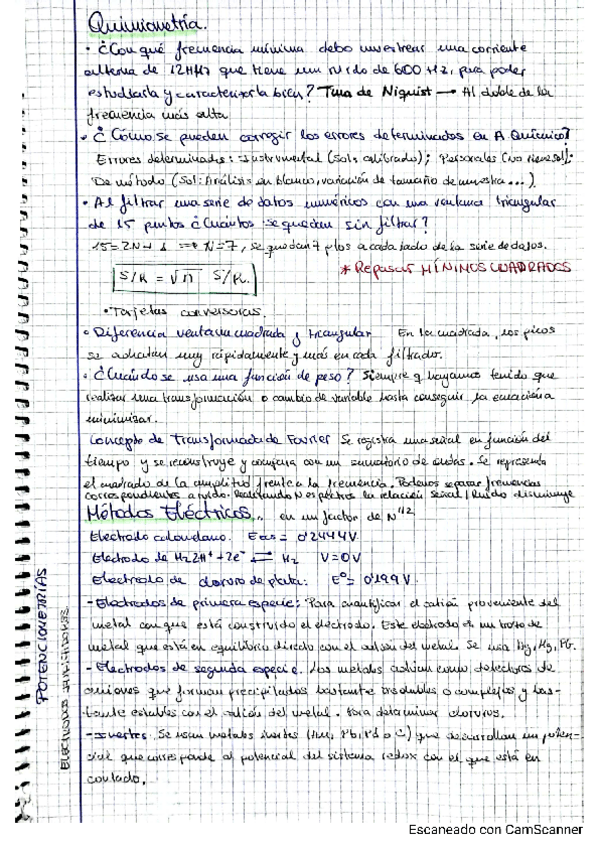 Quimiometría.
• ¿Con qué frecuencia mínima debo muestrear una corriente
alterna de 12MHz que tiene un ruido de 600 Hz, para poder
estudiarla y caracterizarla bien? Tma de Niquist → Al doble de la
frecuencia más alta
• ¿Cómo se pueden corregir los errores determinados en A Químico?
Errores determinados: Instrumental (Sol: calibrado); Personales (no tiene sol);
De método (Sol: Análisis en blanco, variación de tamaño de muestra...)
• Al filtrar una serie de datos numéricos con una ventana triangular
de 15 puntos ¿Cuántos se quedan sin filtrar?
15=2N+1 ⇒ N=7, se quedan 7 ptos a cada lado de la serie de datos.
S/R = √n S/R.
* Repasar MÍNIMOS CUADRADOS
• Tarjetas conversoras.
• Diferencia ventana cuadrada y triangular En la cuadrada, los picos
se achatan muy rápidamente y más en cada filtrado.
• ¿Cuándo se usa una función de peso? Siempre q hayamos tenido que
realizar una transformación o cambio de variable hasta conseguir la ecuación a
minimizar.
Concepto de Transformada de Fourier Se registra una señal en función del
tiempo y se reconstruye y compara con un sumatorio de ondas. Se representa
el cuadrado de la amplitud frente a la frecuencia. Podemos separar frecuencias
correspondientes a ruido. Realizando N espectros la relación señal/Ruido disminuye
Métodos Eléctricos. en un factor de N^1/2
Electrodo calomelano. = 0'2444V.
Electrodo de H₂ 2H⁺ + 2e⁻ ⇄ H₂ V=0V
Electrodo de cloruro de plata: E°= 0'199V.
- Electrodos de primera especie: Para cuantificar el catión proveniente del
metal con que está construido el electrodo. Este electrodo es un trozo de
metal que está en equilibrio directo con el catión del metal. Se usa Ag, Hg, Pb.
- Electrodos de segunda especie. Los metales actúan como detectores de
aniones que forman precipitados bastante insolubles o complejos y bas-
tante estables con el catión del metal. Para determinar cloruros.
- Inertes. Se usan metales inertes que desarrollan un poten-
cial que corresponde al potencial del sistema redox con el que está en
contacto.
POTENCIOMETRÍAS
ELECTRODOS INDICADORES
Escaneado con CamScanner